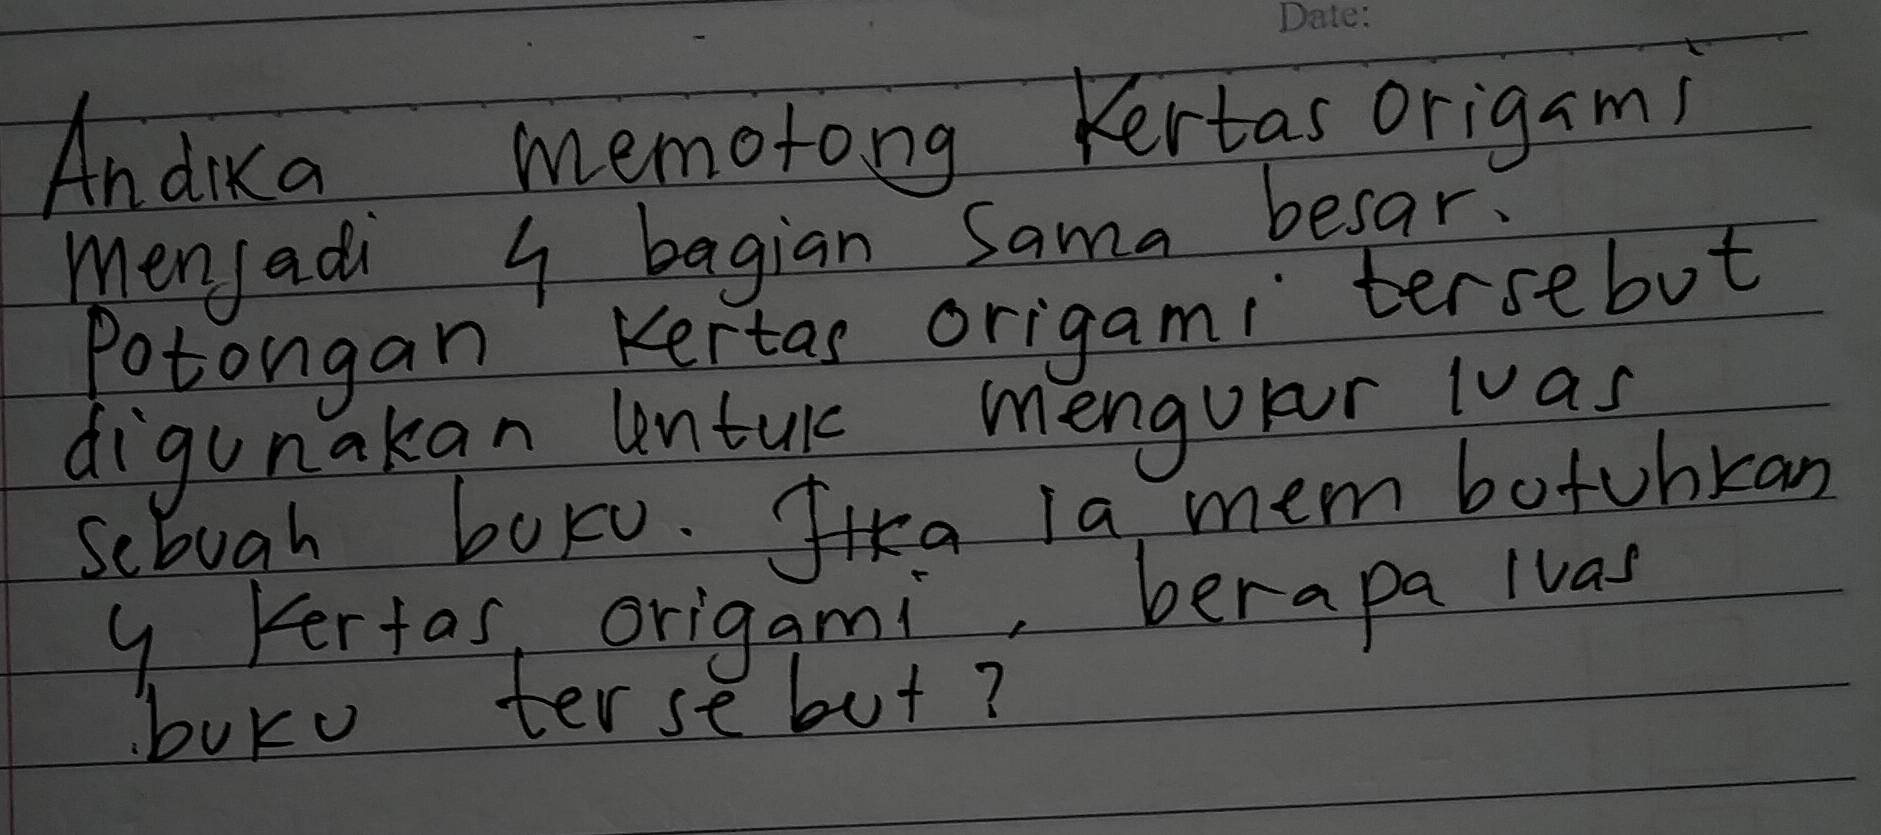 Date:
Andika memotong Kertas origami
menjadi 4 bagian Sama besar.
Potongan Kertas origami tersebut
digunakan Untuk mengukur luas
Sebuah buku. Jika ia mem butuhkan
4 Kertas origami, berapa luas
buku terse but?